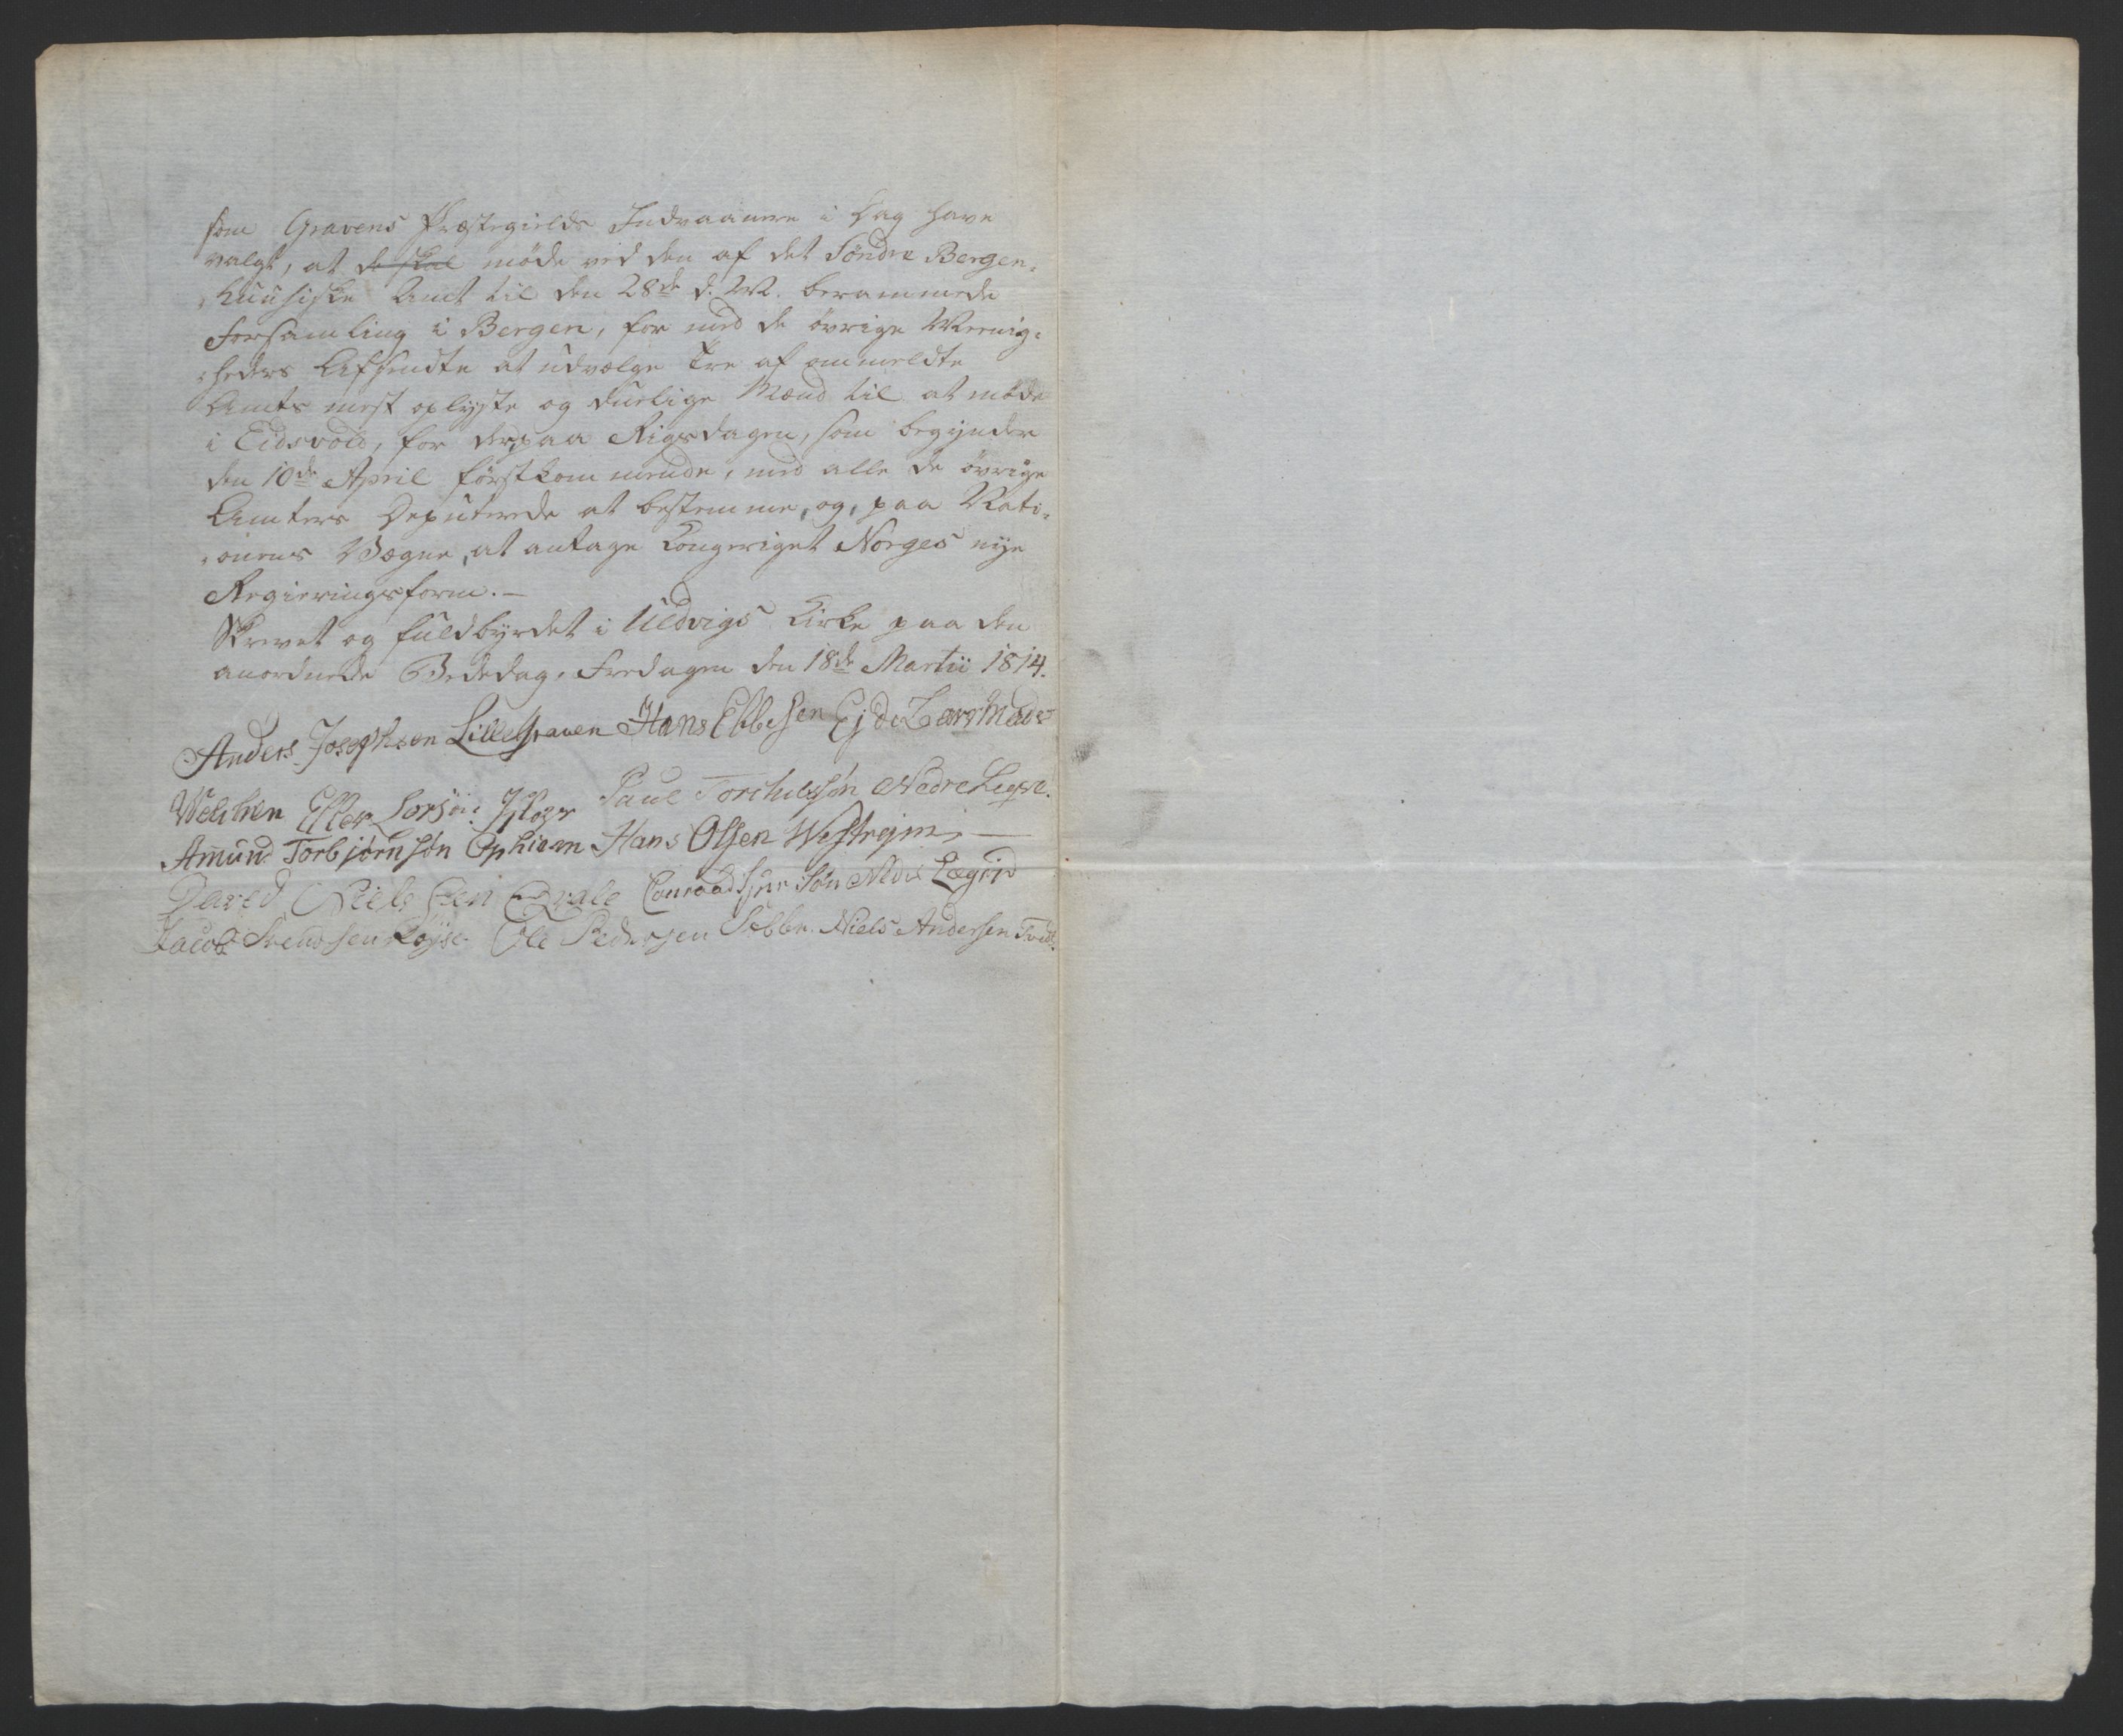 som Gravens Præstegields Indvaanere i Dag have
valgt, at de skal møde ved den af det Söndre Bergen-
huusiske Amt til den 28de d. M. berammede
Forsamling i Bergen, for med de övrige Meenig-
heders Afsendte at udvælge tre af ommeldte
Amts mest oplyste og duelige Mænd til at møde
i Eidsvold, for der paa Rigsdagen, som begynder
den 10de April förstkommende, med alle de övrige
Amters Deputerede at bestemme, og, paa Nati-
onens Vegne, at antage Kongeriget Norges nye
Regieringsform.—
Skrevet og fuldbyrdet i Uldvigs Kirke paa den
anordnede Bededag, Fredagen den 18de Martii 1814.
Anders Josephsen Lille Graven Hans Ebbesen Ejde Lars Mads
Velchen Paul Torchilssøn Nedre
Amund Torbjörnsön Ophiem Hans Olsen Westrejm,—
David Nielssen Qvale Conraad Nedre Lægrid
Jacob Svendsen Røyse Ole Pedersen Niels Andersen